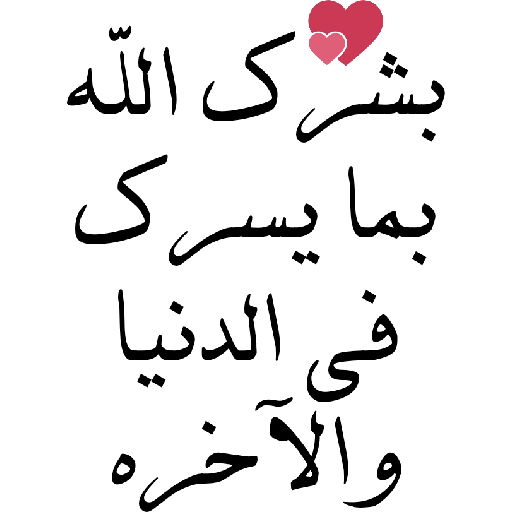 بشرك اللّه
بما يسرك
فى الدنيا
والآخره